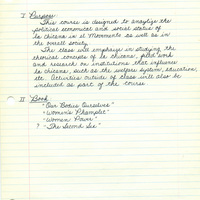 I Purpose
This course is designed to analytize the
political economical and social status of
La Chicana in el Movimiento as well as in
the overall society.
The class will emphasize in studying the
rhetorical concepts of la chicana, field work
and research on institutions that influence
la chicana, such as the welfare system, education,
etc. Activities outside of class will also be
included as part of the course
II Book
"Our Bodies Ourselves"
"Women's Phamplet"
"Women Power"
? "The Second Sex"